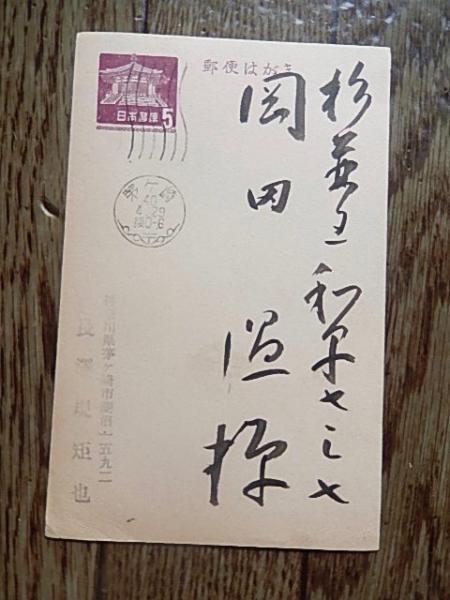 郵便はがき
日本郵便
5
杉並区和泉七ノ七
岡田温様
茅ヶ崎
40
神奈川県茅ヶ崎市菱沼一五九二
長澤規矩也